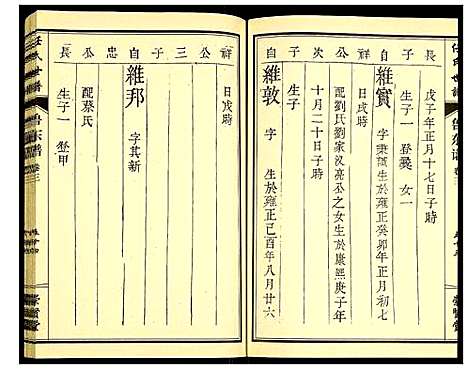 魯东谱 卷三
長
子
自
祥
公
次
子
自
戊子年正月十七日子時
生子一 登爕 女一
維實 字秉穎生於雍正癸卯年正月初七
日戌時
配劉氏劉家汉亮公之女生於康熙庚子年
十月二十日子時
生子
維敦 字 生於雍正己酉年八月廿六
祥
公
三
子
自
忠
公
長
日戌時
維邦 字其新
配蔡氏
生子一 登甲
任氏世譜
魯东谱 卷三